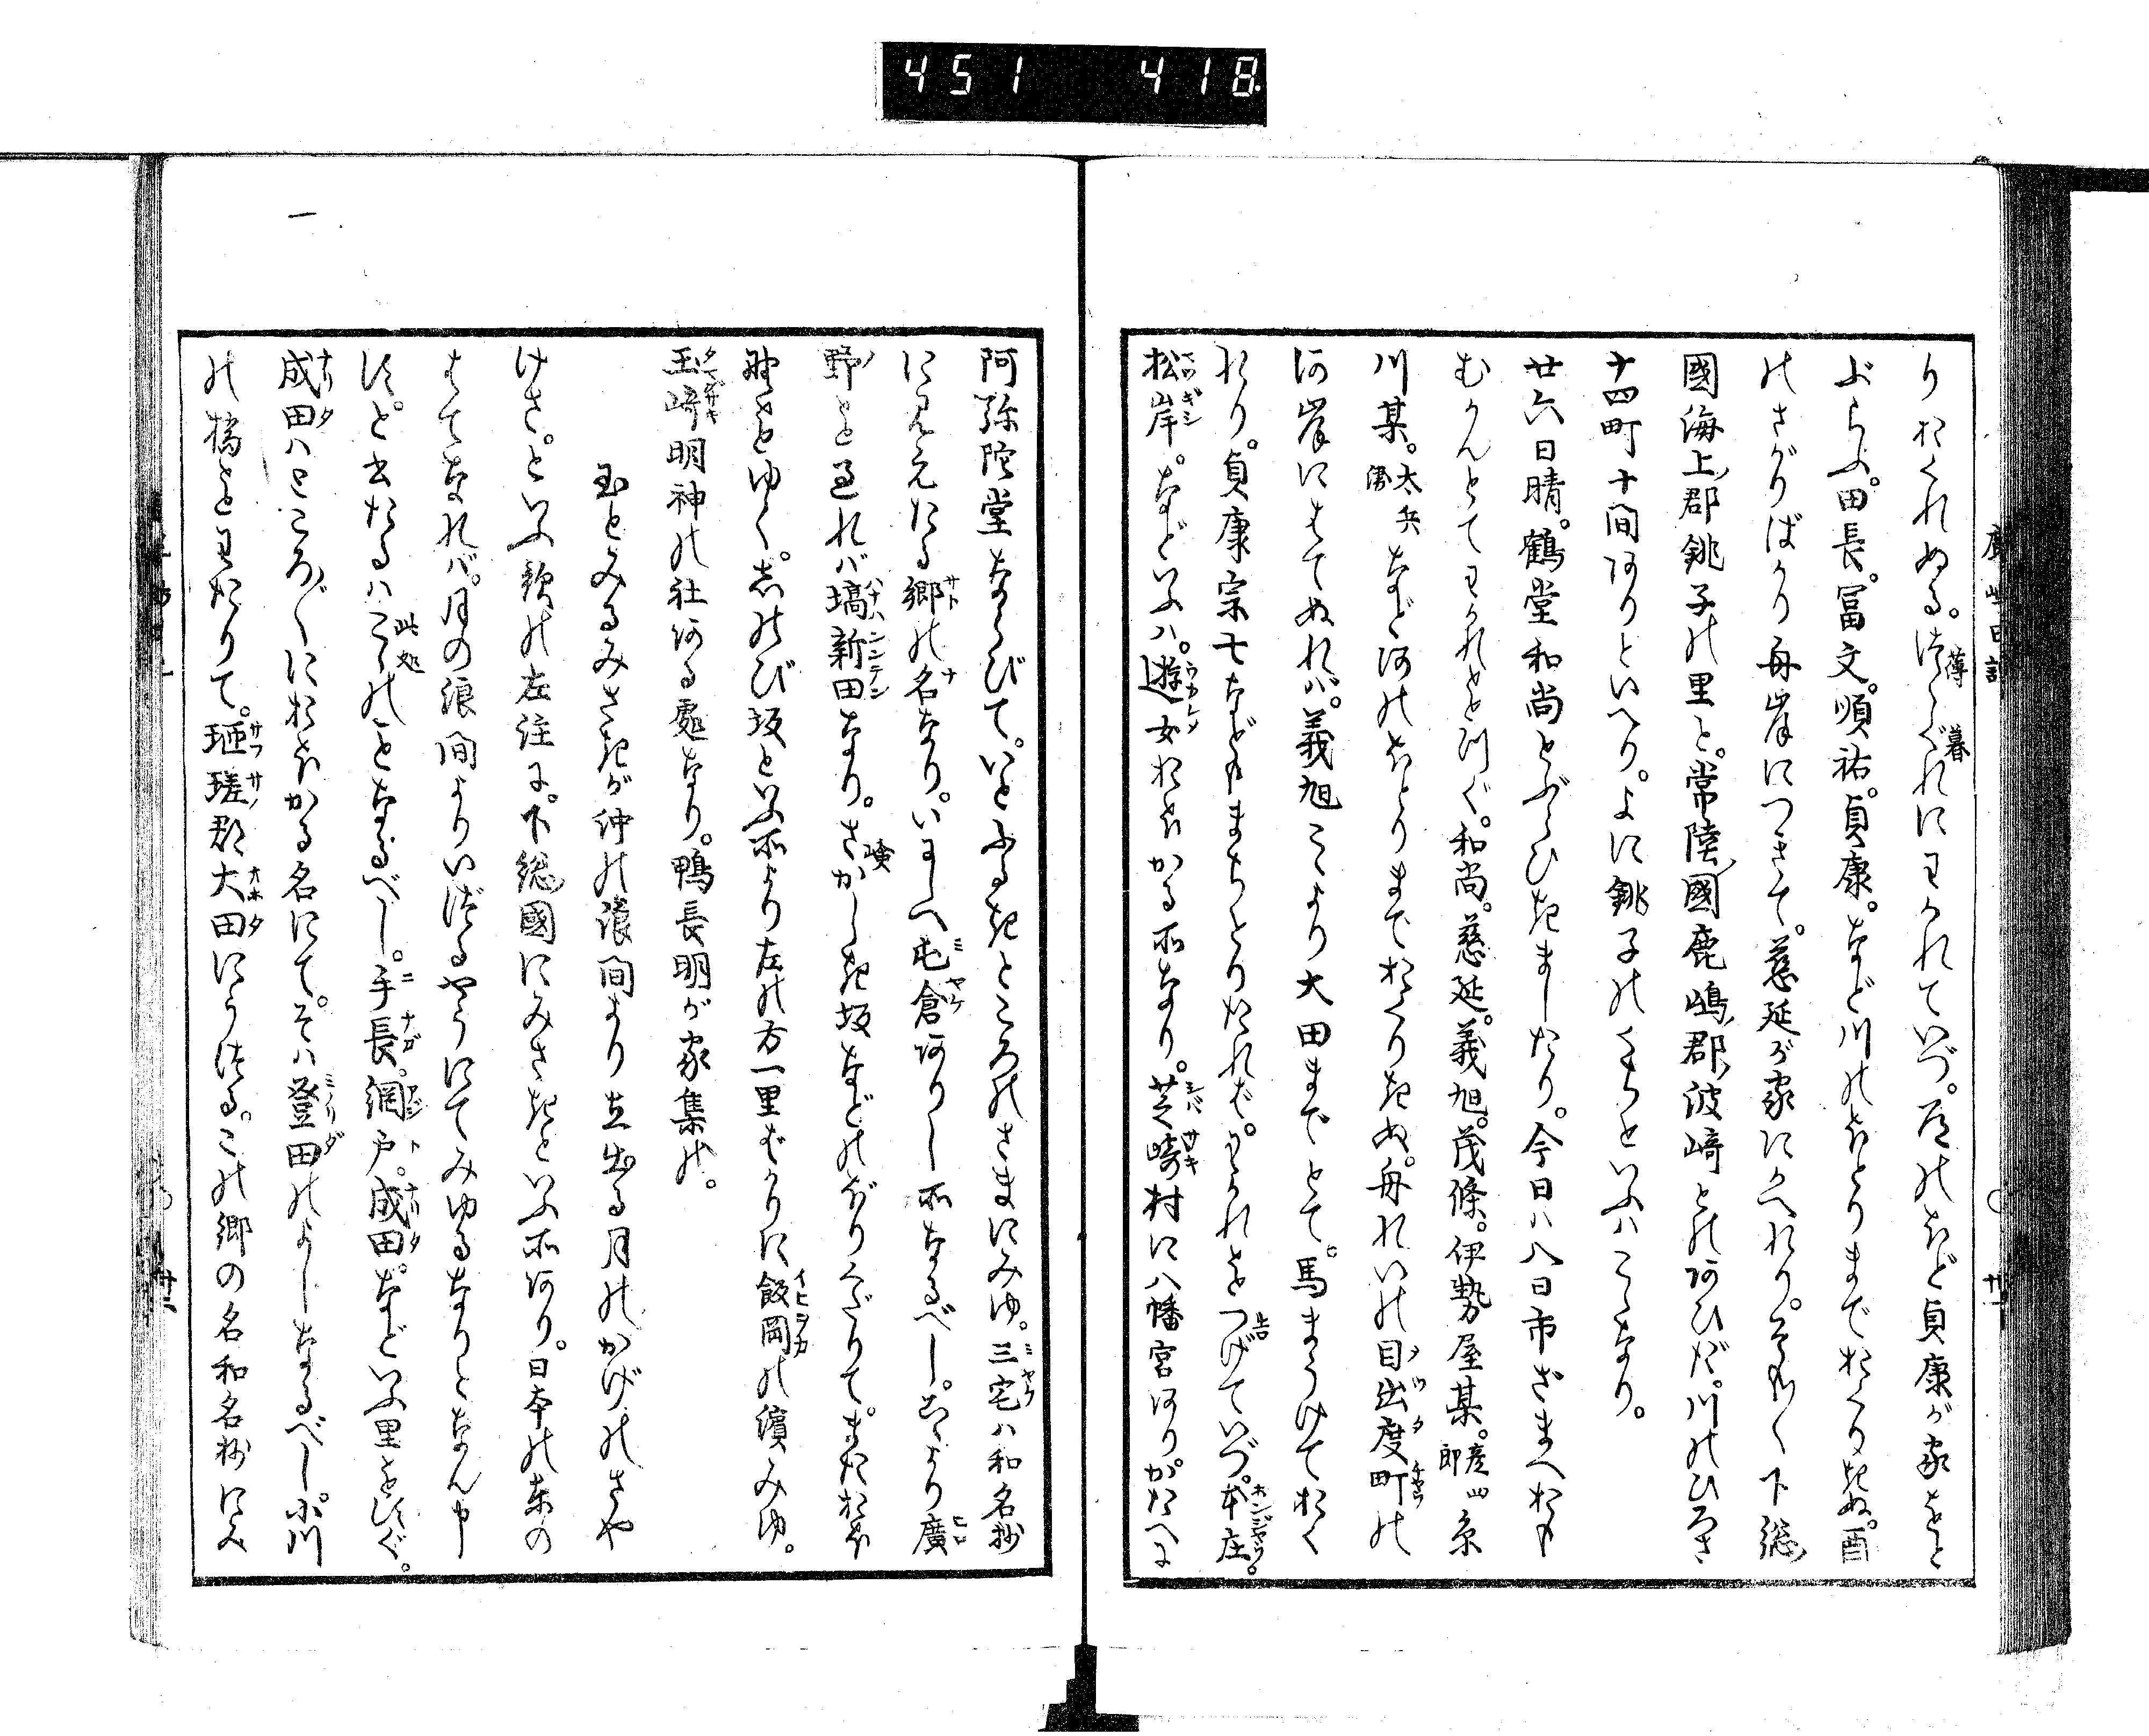 451 418
りおくれぬる。薄暮にわかれていづ。冗のほど貞康が家をと
ぶらふ。田長。冨文。順祐。貞康。など川のほとりまでおくりきぬ。酉
のさがりばかり舟岸につきて。慈延が家にかへれり。そも〳〵下総ノ
國海上ノ郡銚子の里と。常陸ノ國鹿嶋ノ郡波﨑とのあひだ。川のひろさ
十四町十間ありといへり。よに銚子のくちといふはこゝなり。
廿六日晴。鶴堂和尚とぶらひきましたり。今日は八日市ざまへおも
むかんとてわかれをつぐ。和尚。慈延。義旭。茂條。伊勢屋某。彦四郎糸
川某。太兵衛などあのほとりまでおくりきぬ。舟れいの目出度町の
河岸にはてぬれば。義旭こゝより大田までとて。馬まうけておく
れり。貞康宗七などもまちとりたれば。わかれをつげていづ。本庄。
松岸。などいふは。遊女おほかる所なり。芝﨑村に八幡宮あり。かたへに
阿弥陀堂ならびて。いとふるきところのさまにみゆ。三宅は和名抄
に見えたる郷の名なり。いにしへ屯倉ありし所なるべし。こゝより廣
野を過れば塙新田なり。さかしき坂などのぼりくだりて。またおほ
野をゆく。しのび坂といふ所より左の方一里ばかりに飯岡の濱みゆ。
玉﨑明神の社ある處なり。鴨長明が家集の。
玉とみるみさきが沖の浪間より立出る月のかげのさや
けさ。といふ歌の左注に。下総ノ國にみさきといふ所あり。日本の東の
はてなれば。月の浪間よりいづるやうにてみゆるなりとなん申
す。と書たるはこゝのことなるべし。手長。網戸。成田。などいふ里をすぐ。
成田はところ〴〵におほかる名にて。そは登田のよしなるべし。小川
の橋をわたりて。匝瑳ノ郡大田にうつる。この郷の名和名抄にみ